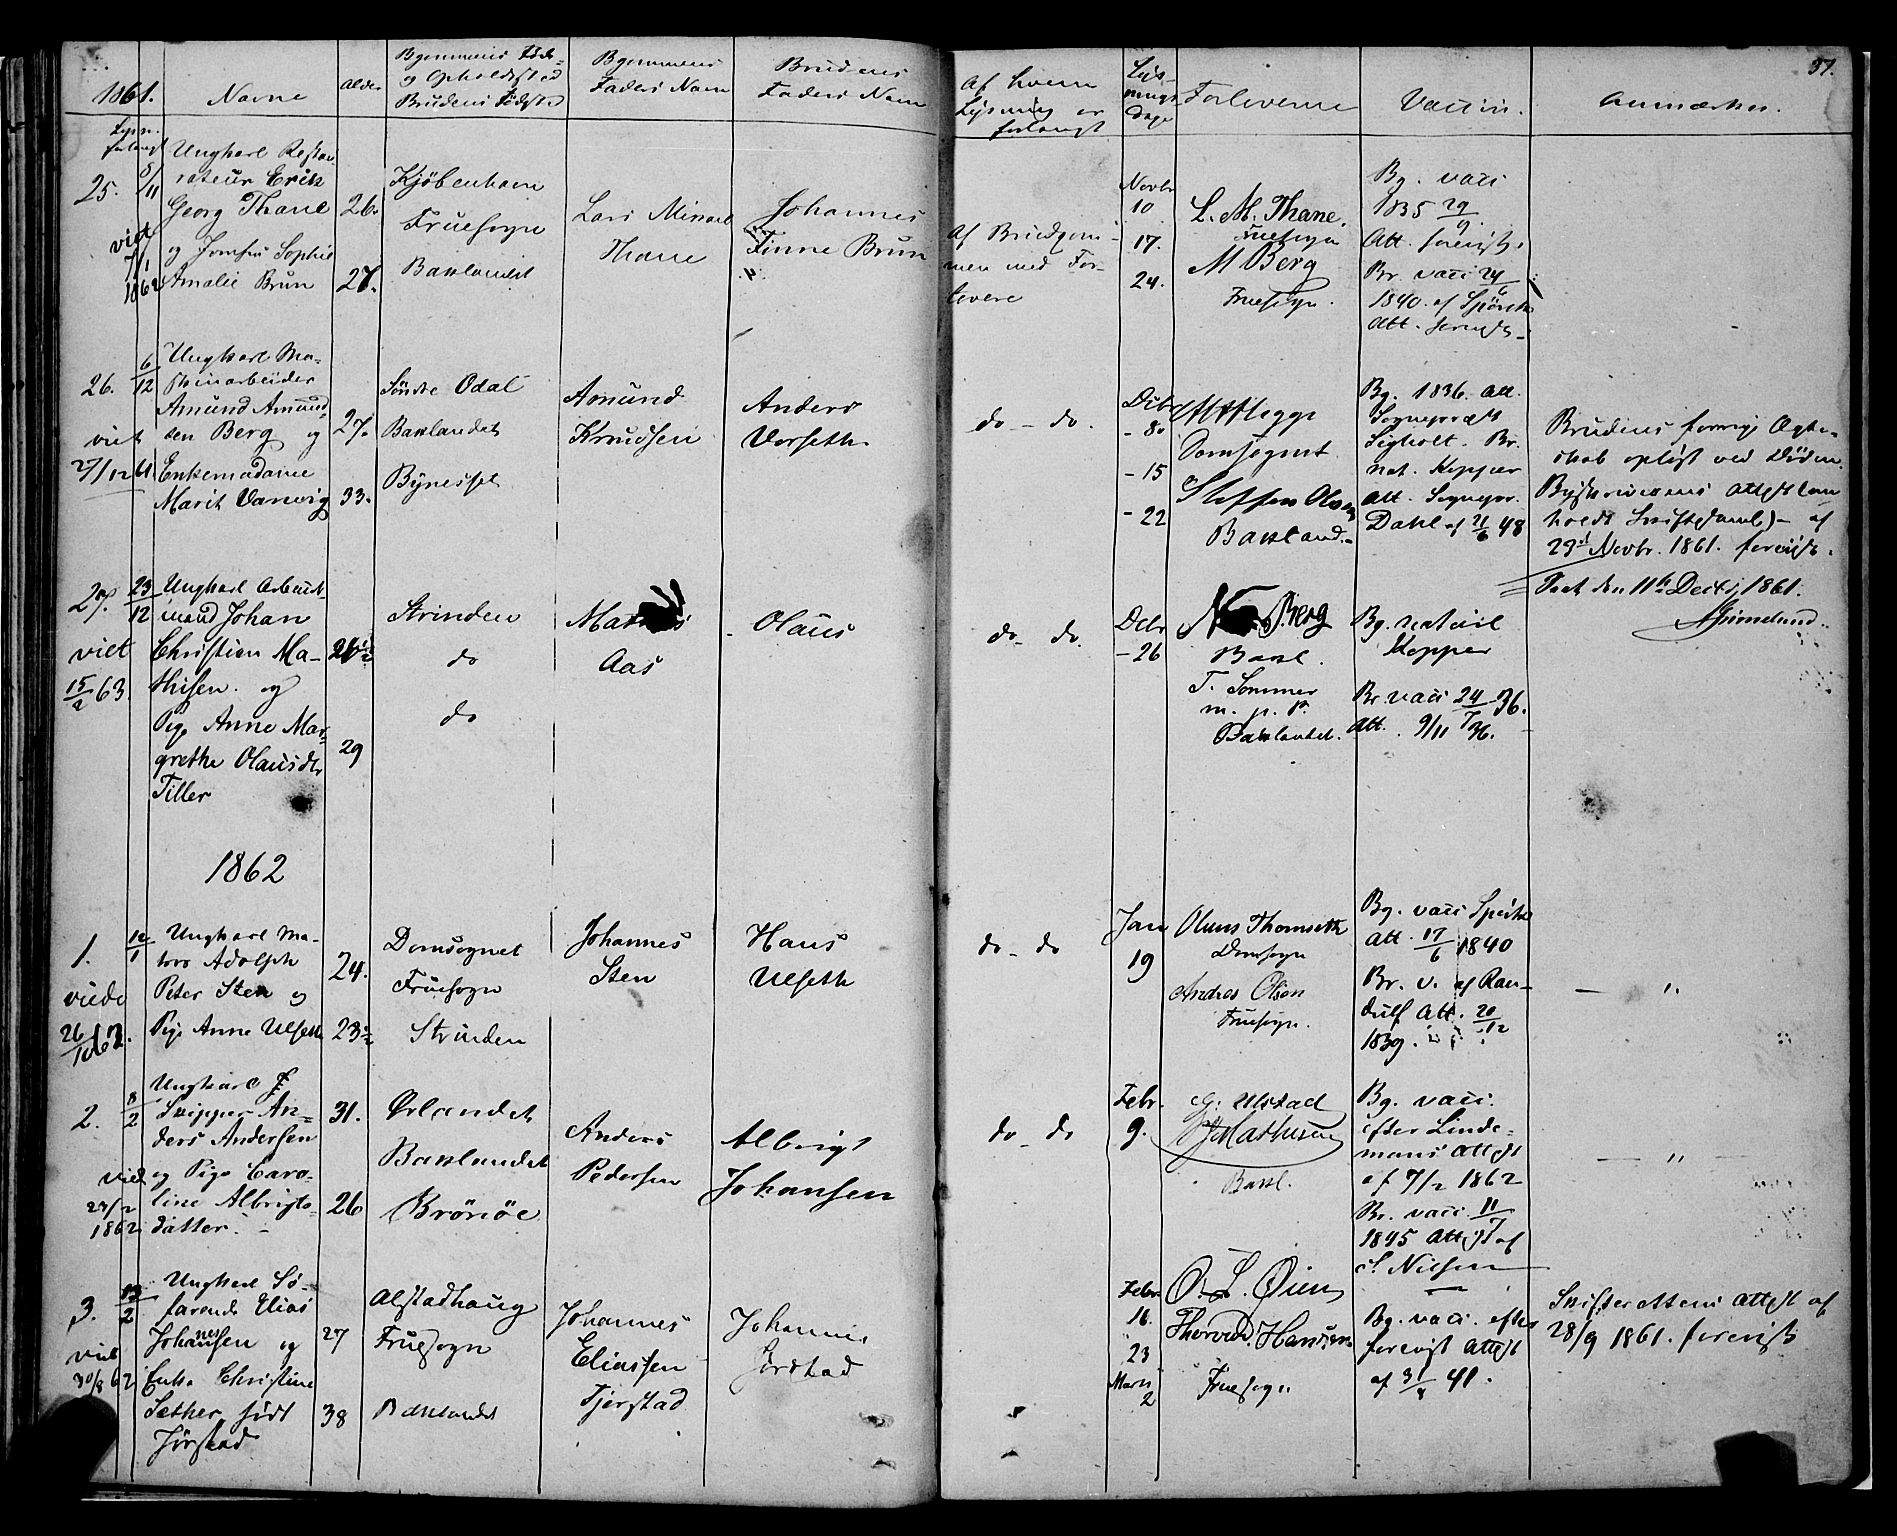 37.
1861.
Navne
Alder
Bgommens Føde-
og Opholdssted
Brudens Fødste
Bgommens
Faders Navn
Brudens
Faders Navn
Af hvem
Lysning er
forlangt
Lys-
nings
Dage
Forloverne
Vaccin.
Anmærkn.
Lysn.
forlangt
25.
8/11
viet
7/1
1862
Ungkarl Restau-
rateur Erik
Georg Thane
og Jomfru Sophie
Amalie Brun
26.
27.
Kjöbenhavn
Fruesogn
Baklandet
Lars
Thane
Johannes
Finne Brun
Af Brudgom-
men med For-
lovere
Novbr
10
17.
24.
L. M. Thane.
Fruesogn
M Berg
Fruesogn.
Bg. vacc
1835 29/9
Att. forevist.
Br. vacc 24/6
1840. af
Att. forevist
26.
6/12
viet
27/12 61
Ungkarl Ma-
skinarbeider
Amund Amund-
sen Berg og
Enkemadame
Marit Vanvig
27.
33.
Söndre Odal
Baklandet
Bynesset
Amund
Knudsen
Anders
Vorseth
do - do.
Dcbr
- 8.
- 15
- 22
Domsognet
Steffen Olsen
Bakland.
Bg. 1836. Att.
Sogneprest
Sigholt. Br.
nat. Kopper
Att. Sognepr.
Dahl af 21/6 48
Brudens forrige Ægte-
skab opløst ved Døden.
Byskriverens Attest (an
holdt Skiftesaml) - af
29d Novbr. 1861. forevist.
den 11te Decbr 1861.
27.
23/12
viet
15/2 63.
Ungkarl Arbeids-
mand Johan
Christian Ma-
thisen og
Pige Anne Mar-
grethe Olausdtr
Tiller
29
Strinden
do
do
Aas
Olaus
do - do.
Dcbr
- 26
Berg
Bakl.
T. Sommer
m. p. P.
Baklandet.
Bg. naturl
Kopper
Br. vacc 24/7 36.
Att. 9/11 36.
1862
1.
12/1
viede
26/10 62.
Ungkarl Ma-
tros Adolph
Peter Sten og
Pige Anne Ulseth
24.
23½
Domsognet
Fruesogn
Strinden
Johannes
Sten
Hans
Ulseth
do - do
Jan
19
Oluus Thomseth
Domsogn
Andreas Olsen
Fruesogn.
Bg. vacc
Att. 17/6 1840
Br. v. af Ran-
dulf Att. 20/12
1839.
— " 
2.
8/2
viet
27/2
1862
Ungkarl
Skipper An-
ders Andersen
og Pige Caro-
line Albrigts-
datter. -
31.
26
Ørlandet
Baklandet
Brönöe
Anders
Pedersen
Albrigt
Johansen
do - do
Febr.
9.
G. Ulstad
Mathisen
Bakl.
Bg. vacc.
efter Linde-
mans Attest
af 7/2 1862
Br. vacc. 11/7
1845 Attest af
Nilsen
— " —
3.
13/2
viet
30/8 62
Ungkarl Sö-
farende Elias
Johannessen og
Enke Christine
Sæther födt
Jörstad
27
38
Alstadhaug
Fruesogn
Baklandet
Johannes
Eliassen
Tjerstad
Johannes
Jörstad
Febr
16.
23
Marts
2
O. L. Øien
Thorvald Hansen
Fruesogn
Bg. vacc. efter
forevist Attest
af 31/8 41.
Skifterettens Attest af
28/9 1861. forevist